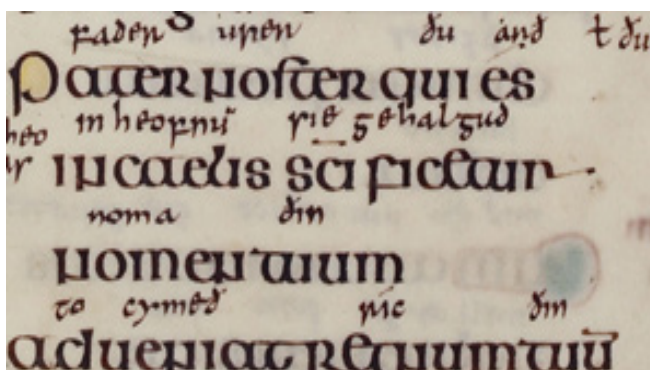 fader urer ðu arð ł ðu
Pater noster qui es
in heofnū sie gehalgud
in caelis scificetur
noma ðin
nomen tuum
to cymeð ric ðin
adueniat regnum tuū